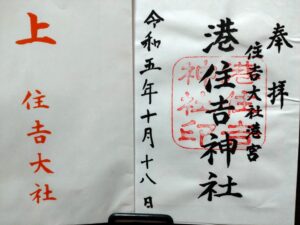 奉拝
住吉大社港宮
港住吉神社
港住吉神社印
令和五年十月十八日
上
住吉大社